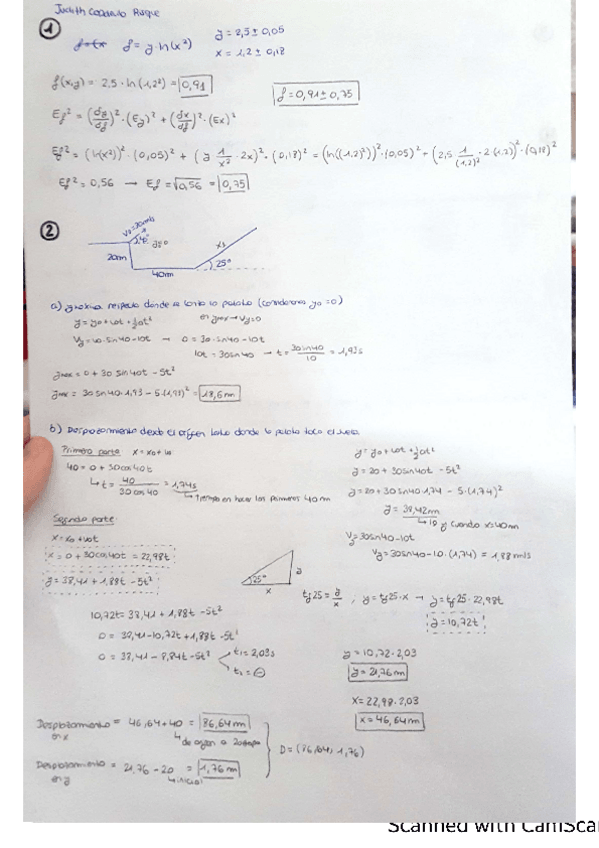 Judith Cuadrado Roque
1
f=y·ln(x²)
y = 2,5 ± 0,05
x = 1,2 ± 0,18
f(x,y) = 2,5 · ln(1,2²) = 0,91
f = 0,91 ± 0,75
Ef² = (dy/df)² · (Ey)² + (dx/df)² · (Ex)²
Ef² = (ln(x²))² · (0,05)² + (y 1/x² · 2x)² · (0,18)² = (ln((1,2)²))² · (0,05)² + (2,5 · 1/(1,2)² · 2(1,2))² · (0,18)²
Ef² = 0,56 → Ef = √0,56 = 0,75
2
V0=30m/s
40°
20m
40m
25°
a) y máxima respecto donde se lanza la pelota (consideramos y0 = 0)
y = y0 + v0t + ½at²
en ymax → Vy = 0
Vy = v0 · sin40 - 10t → 0 = 30 · sin40 - 10t
10t = 30 sin40 → t = 30 sin40/10 = 1,93s
ymax = 0 + 30 sin 40t - 5t²
ymax = 30 sin 40 · 1,93 - 5 · (1,93)² = 18,6m
b) Desplazamiento desde el origen hasta donde la pelota toca el suelo
Primera parte
40 = 0 + 30 cos 40t
t = 40/30 cos 40 = 1,74s
Tiempo en hacer los primeros 40m
y = y0 + v0t + ½at²
y = 20 + 30 sin40t - 5t²
y = 20 + 30 sin 40 · 1,74 - 5 · (1,74)²
y = 38,42m
la y cuando x = 40m
Vy = 30 sin 40 - 10t
Vy = 30 sin 40 - 10 · (1,74) = 1,88m/s
Segunda parte:
x = x0 + v0t
x = 0 + 30 cos 40t = 22,98t
y = 38,41 + 1,88t - 5t²
25°
x
y
tg25 = y/x, y = tg25 · x → y = tg25 · 22,98t
y = 10,72t
10,72t = 38,41 + 1,88t - 5t²
0 = 38,41 - 10,72t + 1,88t - 5t²
0 = 38,41 - 8,84t - 5t²
t1 = 2,03s
t2 = ⊖
y = 10,72 · 2,03
y = 21,76m
x = 22,98 · 2,03
x = 46,64m
Desplazamiento en x = 46,64 + 40 = 86,64m
Desplazamiento en y = 21,76 - 20 = 1,76m
inicial
D = (86,64, 1,76)
Scanned with CamSca